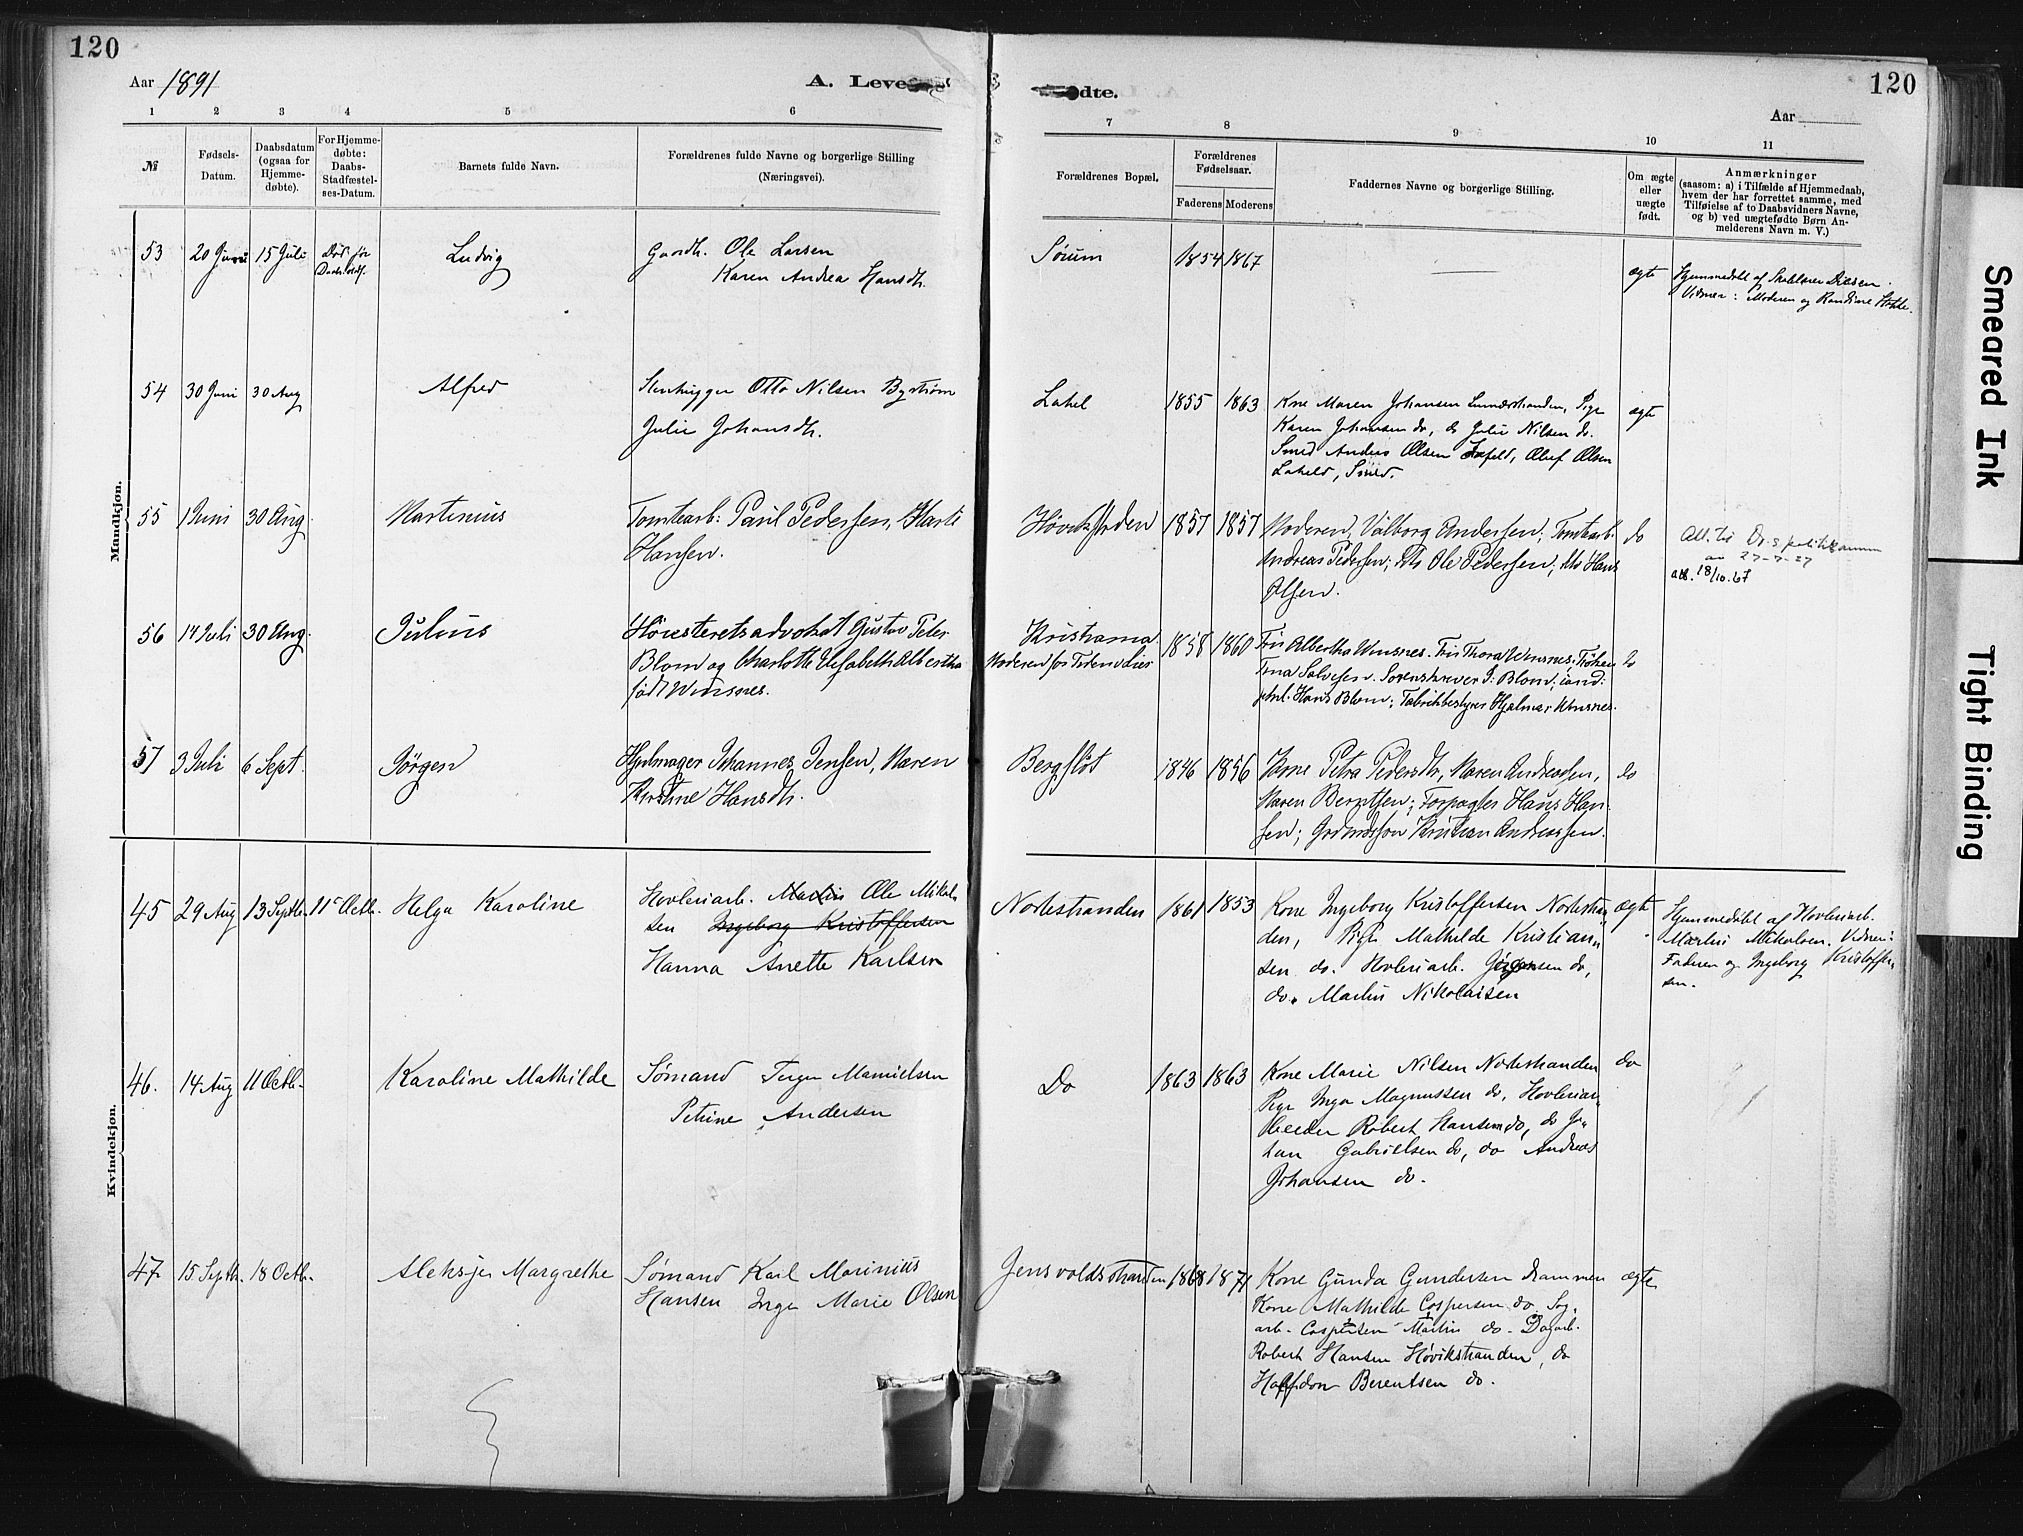 120
Aar 1891
A. Leve
dte.
120
Aar
1 2 3 4 5 6 7 8 9 10 11
№
Fødsels-
Datum.
Daabsdatum
(ogsaa for
Hjemme-
døbte).
For Hjemme-
døbte:
Daabs-
Stadfæstel-
ses-Datum.
Barnets fulde Navn.
Forældrenes fulde Navne og borgerlige Stilling
(Næringsvei).
Forældrenes Bopæl.
Forældrenes
Fødselsaar.
Faderens Moderens
Faddernes Navne og borgerlige Stilling.
Om ægte
eller
uægte
født.
Anmærkninger
(saasom: a) i Tilfælde af Hjemmedaab,
hvem der har forrettet samme, med
Tilføielse af to Daabsvidners Navne,
og b) ved uægtefødte Børn An-
melderens Navn m. V.)
Mandkjøn.
53 20 Juni 15 Juli Død før
Ludvig
Gaardb. Ole Larsen
Karen Andrea Hansdt.
Sørum
1854 1867
ægte
Hjemmedøbt af
Vidner: Moderen og Randine
54 30 Juni 30 Aug
Alfred
Stenhugger Otto Nilsen Bystrøm
Julie Johansdt.
Lahel
1855 1863
Kone Maren Johansen Pige
Karen Johansen do, do Julie Nilsen do.
Smed Anders Olsen Oluf Olsen
Lahell, Smed.
ægte
55 1 Juni 30 Aug.
Martinius
Tomtearb: Paul Pedersen, Marte
Hansen.
Høvikstranden
1857 1857
Moderen, Valborg Andersen; Tomtearb.
Andreas Pedersen; do Ole Pedersen; do Hans
Olsen.
do
Att. til
27-7-27
att. 18/10.67
56 14 Juli 30 Aug.
Julius
Høiesteretsadvokat Gustav Peter
Blom og Charlotte Elisabeth Albertha
født Winsnes.
Kristiania
Moderen for Tiden i Lier
1858 1860
Fru Albertha Winsnes. Fru Thora Winsnes, Frøken
Tina Salvesen. Sorenskriver P: Blom; cand:
phil: Hans Blom; Fabrikbestyrer Hjalmar Winsnes.
do
57 3 Juli 6 Sept.
Jørgen
Hjulmager Johannes Jensen, Maren
Kirstine Hansdt.
Bergflot
1846 1856
Kone Petra Pedersdtr, Maren Andreasen,
Maren Berntsen; Forpagter Hans Han-
sen; Gaardmandssøn Kristian Andreassen.
do
Kvindekjøn.
45 29 Aug 13 Septb. 11 Octb.
Helga Karoline
Høvleriarb. Martin Ole Mikal-
sen Ingeborg Kristoffersen
Hanna Anette Karlsen
Nordestranden
1861 1853
Kone Ingeborg Kristoffersen Nordestran
den, Pige Mathilde Kristian
sen do. Høvleriarb. Jørgensen do,
do. Martin Nikolaisen
ægte
Hjemmedøbt af Høvleriarb.
Martin Mikalsen. Vidner:
Faderen og Ingeborg Kristoffer
sen.
46. 14 Aug 11 Octb.
Karoline Mathilde
Sømand Terger Manuelsen
Petrine Andersen
Do
1863 1863
Kone Marie Nilsen Nordestranden
Pige Inga Magnussen do, Høvleriar
beider Robert Hansen do, do Jo-
han Gabrielsen do, do Andreas
Johansen do.
do
47 15 Septb. 18 Octb.
Aleksje Margrethe
Sømand Karl Marinius
Hansen Inga Marie Olsen
Jensvoldstranden
1868 1871
Kone Gunda Gundersen Drammen
Kone Mathilde Caspersen do. Sag-
arb. Caspersen Martin do. Dagarb.
Robert Hansen Høvikstranden, do
Halfdan Berentsen do.
ægte
Smeared Ink
Tight Binding